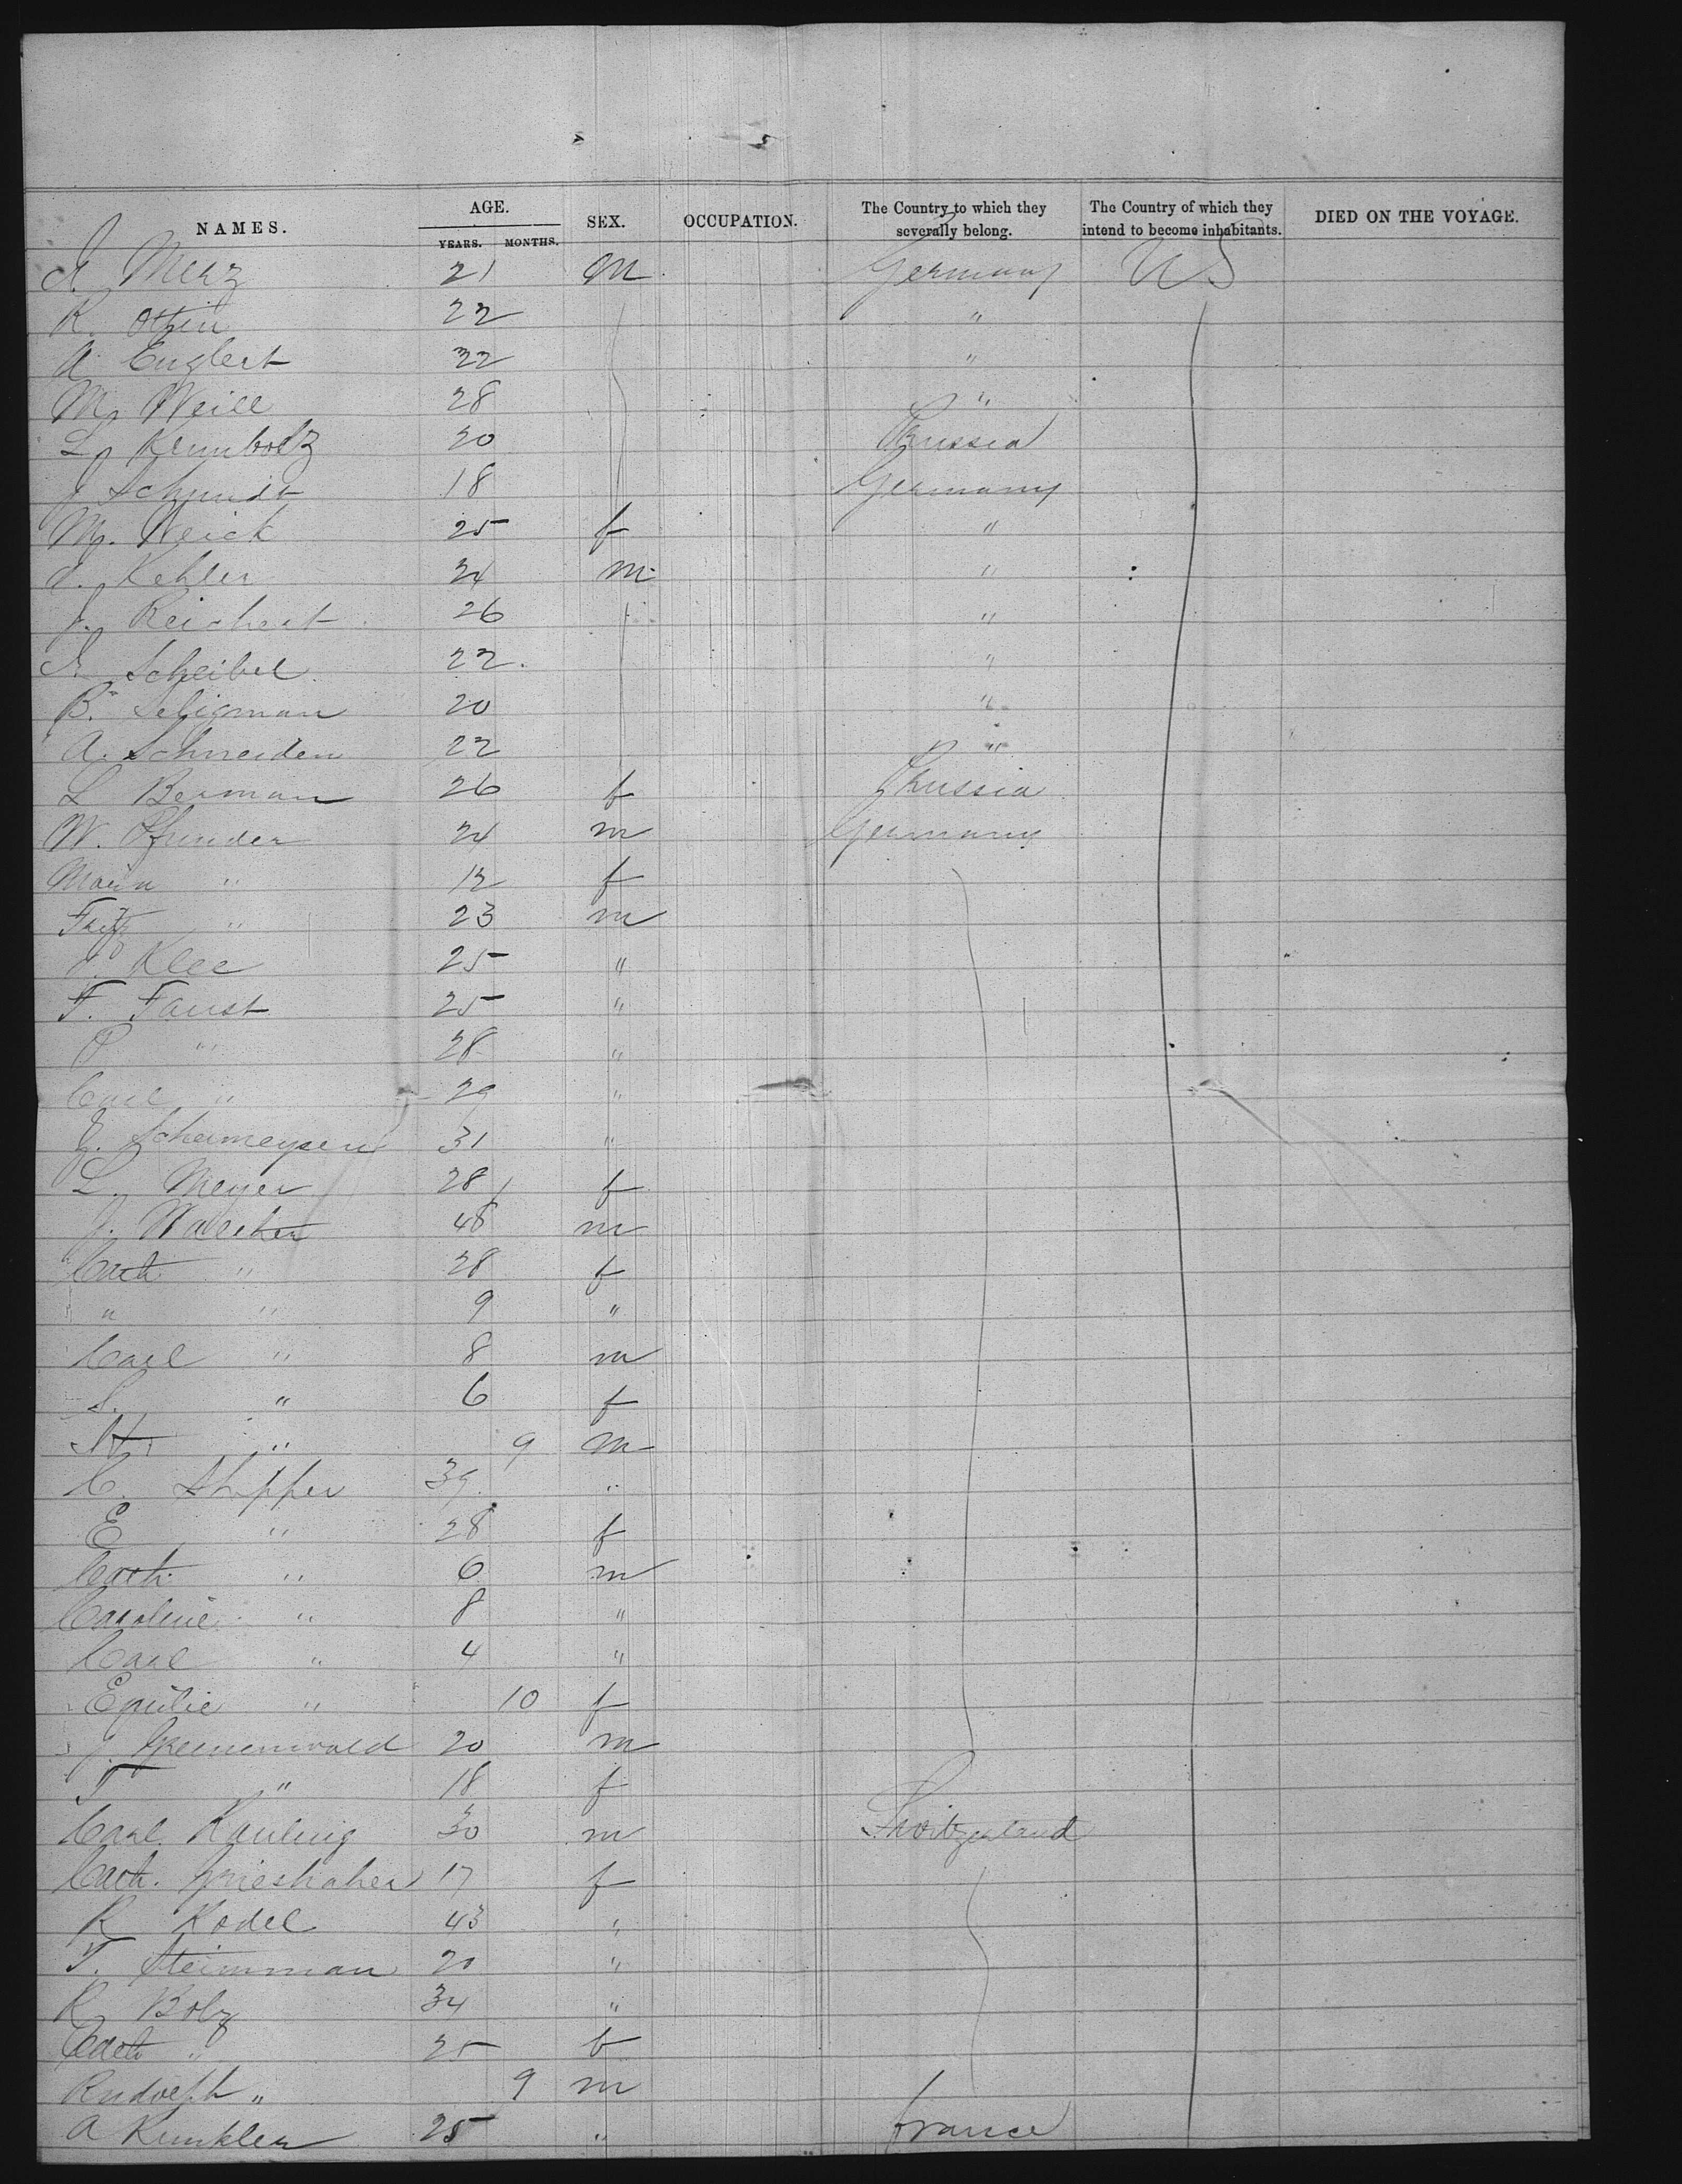 NAMES. AGE. YEARS. MONTHS. SEX. OCCUPATION. The Country to which they severally belong. The Country of which they intend to become inhabitants. DIED ON THE VOYAGE.
Merz 21 m Germany US
R. 22 "
A. Englert 22 "
M. Weill 28 "
L. 20 Prussia
J Schmidt 18 Germany
M. Weick 25 f "
Kehler 24 m "
J. Reichert 26 "
Scheibel 22 "
B. Seligman 20 "
A. Schneider 22 "
L Berman 26 f Prussia
W. Pfrunder 24 m Germany
" 12 f
Fritz " 23 m
J. Klee 25 "
F. Faust 25 "
P " 28 "
Carl " 29 "
J. 31 "
L. Meyer 28 f
J. 48 m
Cath " 28 f
" " 9 "
Carl " 8 m
S. " 6 f
" 9 m
C. 39 "
E " 28 f
Cath " 6 m
Caroline " 8 "
Carl " 4 "
Emilie " 10 f
J. 20 m
T " 18 f
Carl 30 m Switzerland
Cath. Grieshaber 17 f
R Kodel 43 "
T. Steinman 20 "
R Bolz 34 "
" 25 f
Rudolph " 9 m
A Kunkler 25 " France